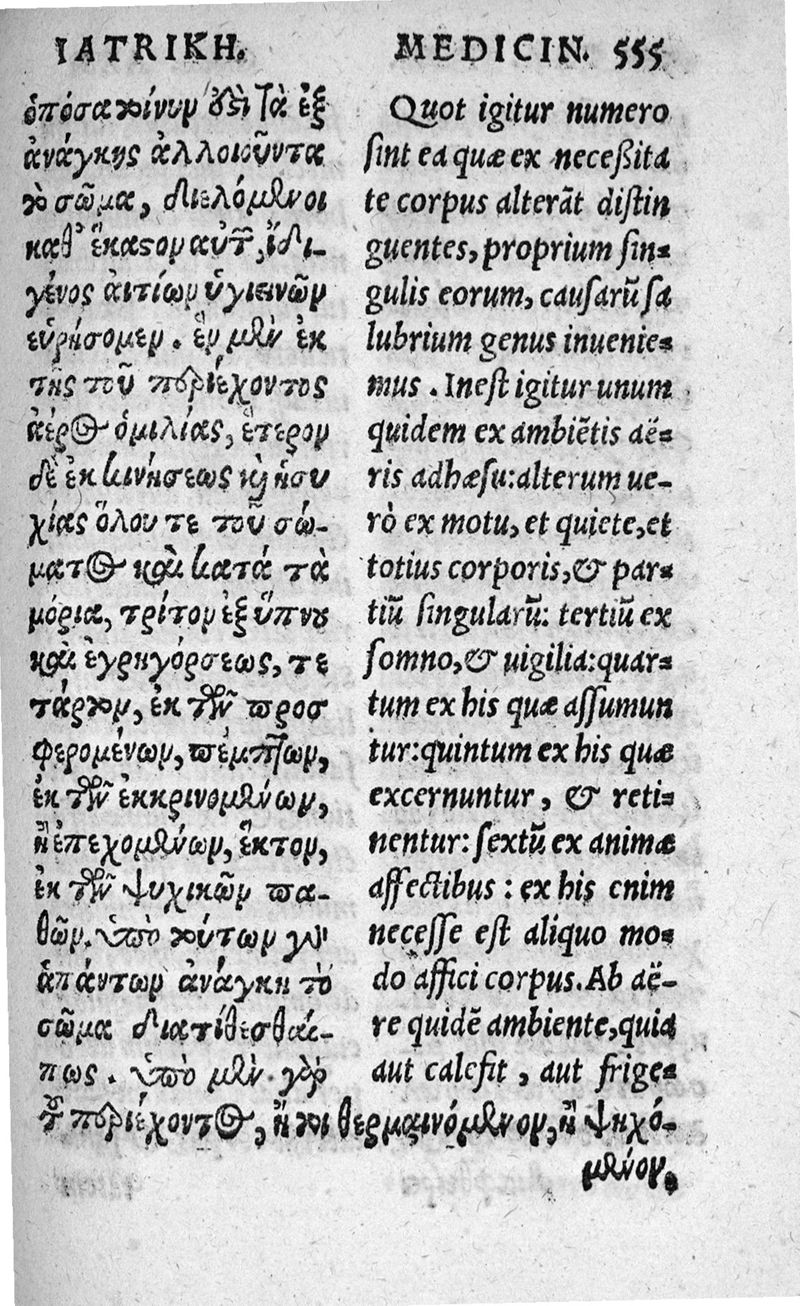 ΙΑΤΡΙΚΗ.
ὁπόσα τοίνυν ὅτι τὰ ἐξ
ἀνάγκης ἀλλοιοῦντα
τὸ σῶμα, διελόμενοι
καθ' ἕκαστον αὐτῶν, ἴδι-
γένος αἰτίων ὑγιεινῶν
εὑρήσομεν. ἓν μὲν ἐκ
τῆς τοῦ περιέχοντος
ἀέρος ὁμιλίας, ἕτερον
δὲ ἐκ κινήσεως καὶ ἡσυ
χίας ὅλου τε τοῦ σώ-
ματος καὶ κατὰ τὰ
μόρια, τρίτον ἐξ ὕπνου
καὶ ἐγρηγόρσεως, τέ
ταρτον, ἐκ τῶν προσ
φερομένων, πέμπτον,
ἐκ τῶν ἐκκρινομένων,
ἢ ἐπεχομένων, ἕκτον,
ἐκ τῶν ψυχικῶν πα-
θῶν. ὑπὸ τούτων γὰρ
ἁπάντων ἀνάγκη τὸ
σῶμα διατίθεσθαί-
πως. ὑπὸ μὲν γὰρ
τοῦ περιέχοντος, ἤτοι θερμαινόμενον, ἢ ψηχό-
μενον,
MEDICIN. 555
Quot igitur numero
sint ea quæ ex neceßita
te corpus alterãt distin
guentes, proprium sin-
gulis eorum, causarũ sa
lubrium genus inuenie-
mus. Inest igitur unum
quidem ex ambiẽtis aë-
ris adhæsu: alterum ue-
rò ex motu, et quiete, et
totius corporis, & par-
tiũ singularũ: tertiũ ex
somno, & uigilia: quar-
tum ex his quæ assumun
tur: quintum ex his quæ
excernuntur, & reti-
nentur: sextũ ex animæ
affectibus: ex his enim
necesse est aliquo mo-
do affici corpus. Ab aë-
re quidẽ ambiente, quia
aut calefit, aut frige-